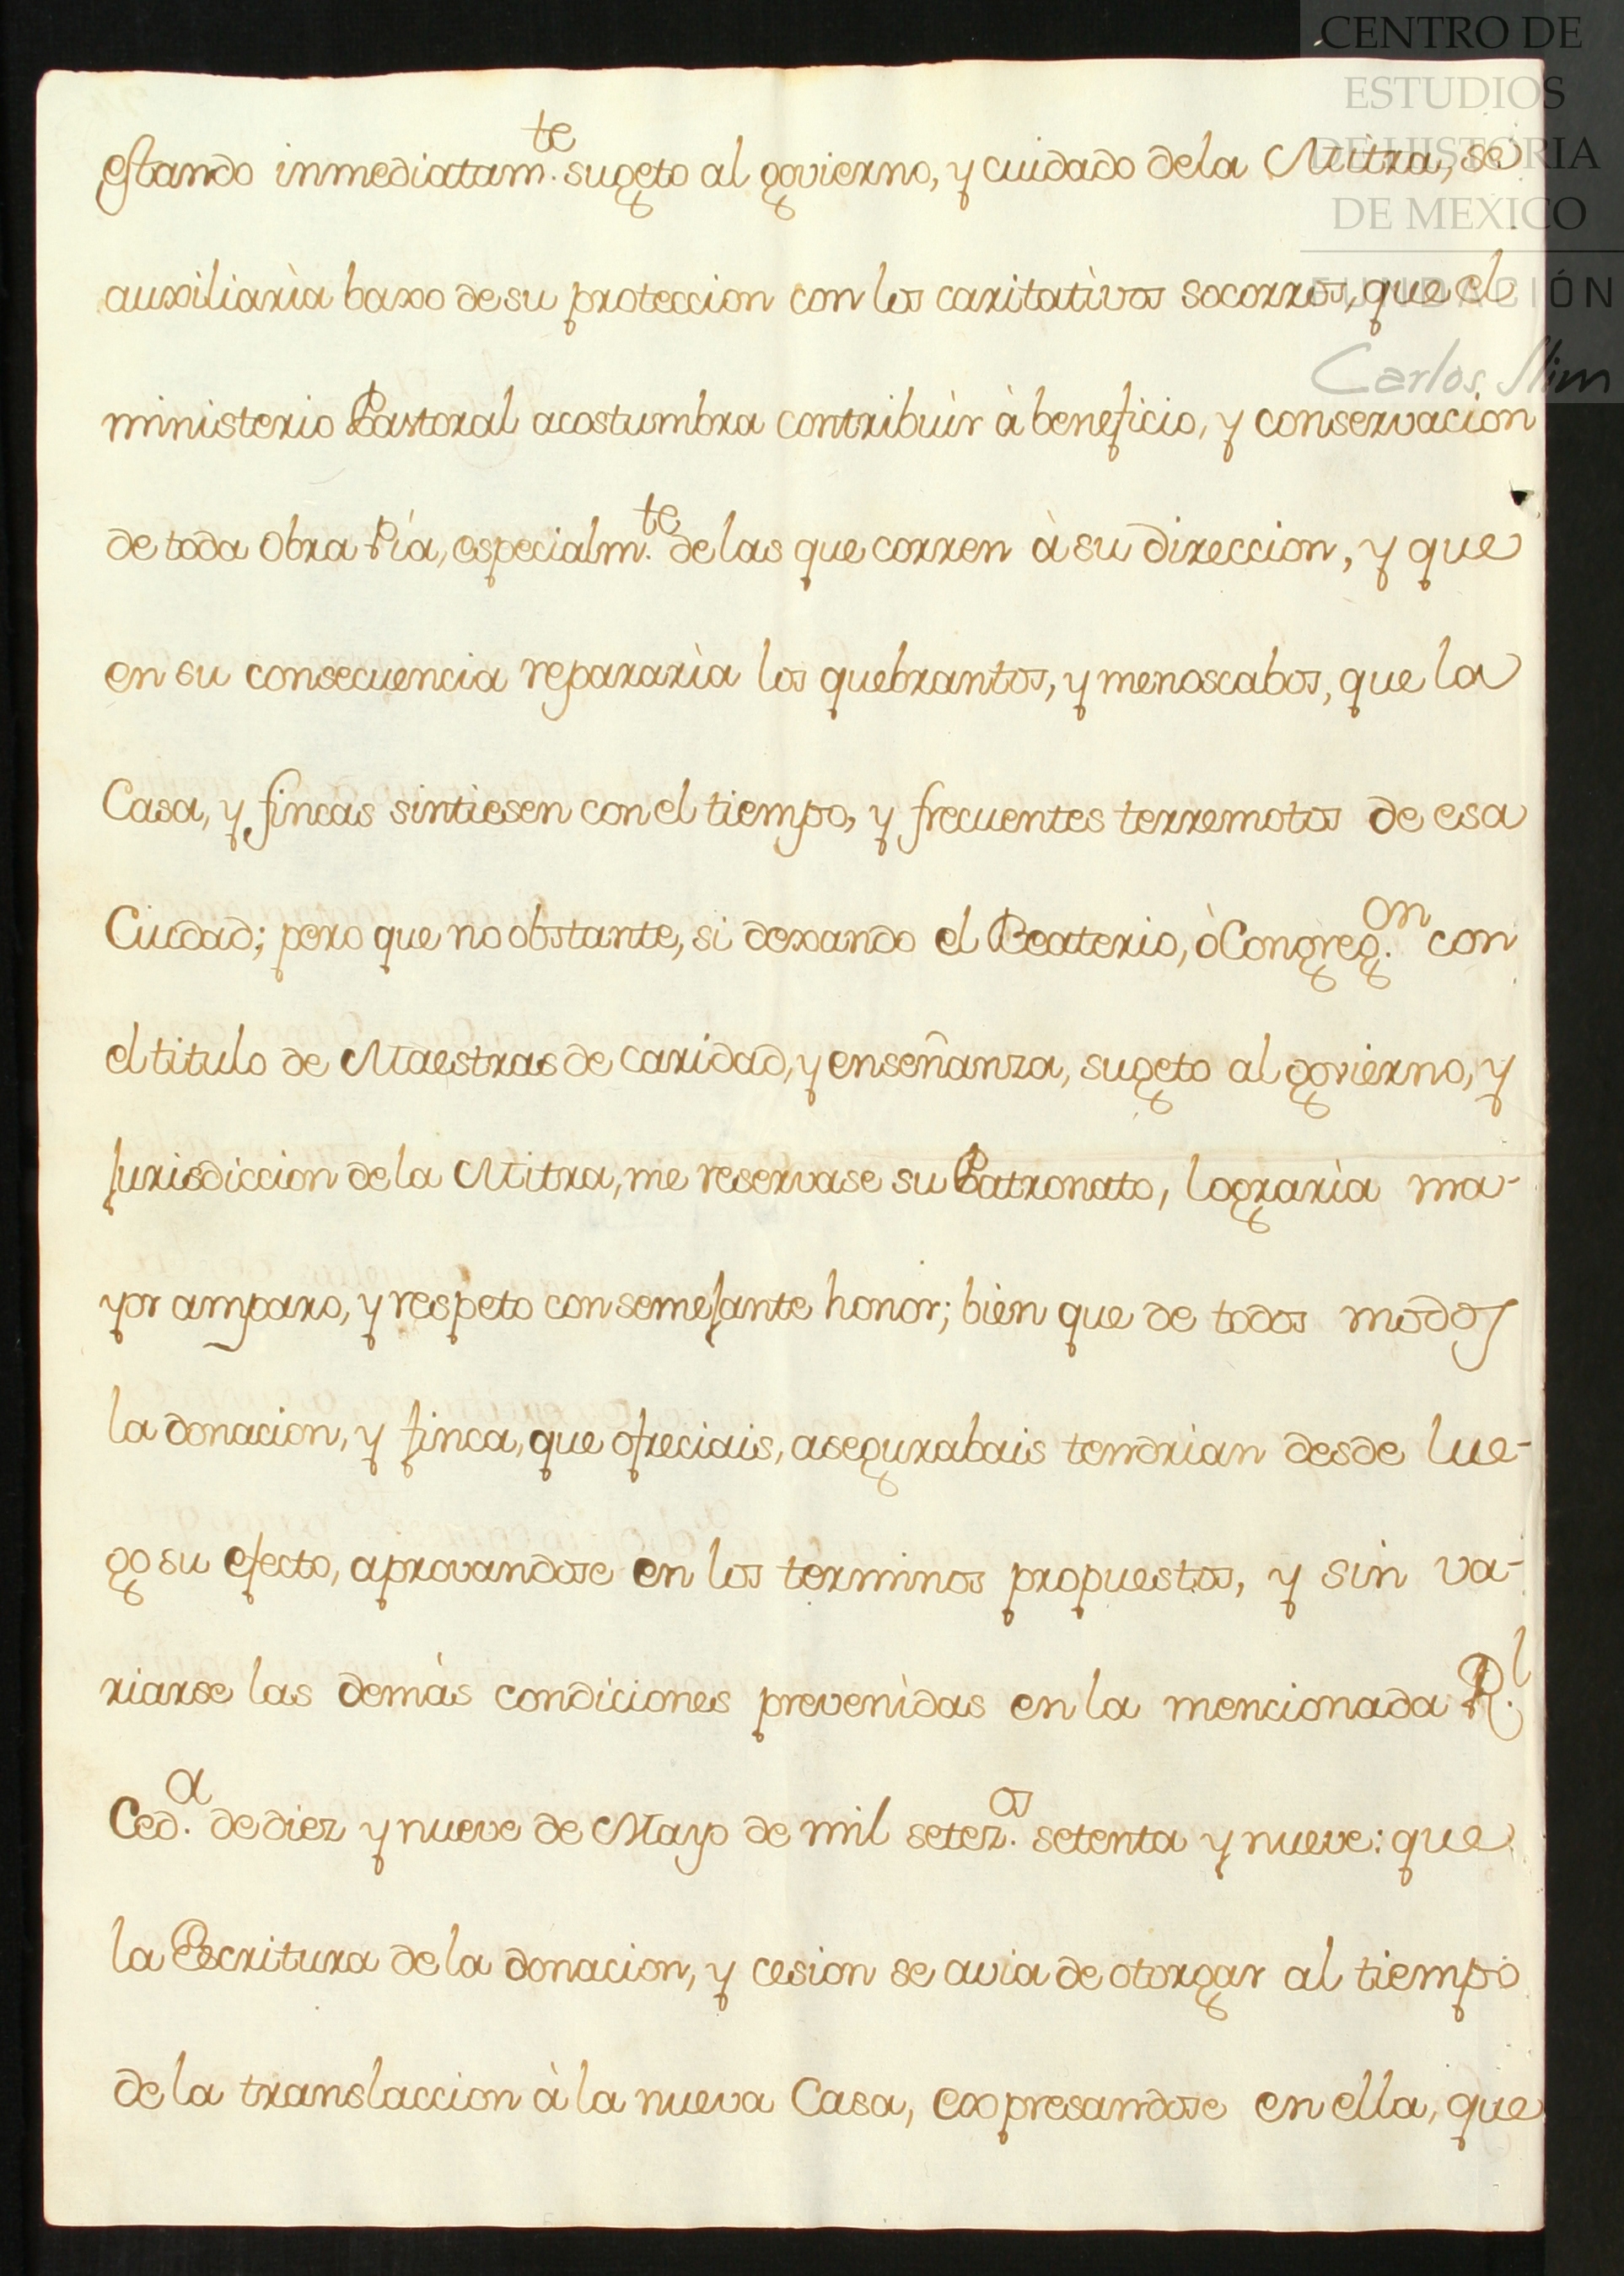 CENTRO DE
ESTUDIOS
DE HISTORIA
DE MEXICO
FUNDACIÓN
Carlos Slim
estando inmediatam.te sugeto al govierno, y cuidado dela Mitra, se
auxiliarìa baxo de su proteccion con los caritatìvos socorros, que el
ministerio Pastoral acostumbra contribuìr à beneficio, y conservacion
de toda Obra Pía, especialm.te de las que corren à su direccion, y que
en su consecuencia repararìa los quebrantos, y menoscabos, que la
Casa, y fincas sintiesen con el tiempo, y frecuentes terremotos de esa
Ciudad; pero que no obstante, si dexando el Beaterio, ò Congreg.on con
el titulo de Maestras de caridad, y enseñanza, sugeto al govierno, y
Jurisdiccion de la Mitra, me reservase su Patronato, lograrìa ma-
yor amparo, y respeto con semejante honor; bien que de todos modos
la donacion, y finca, que ofreciais, asegurabais tendrian desde lue-
go su efecto, aprovandose en los terminos propuestos, y sin va-
riarse las demàs condiciones prevenìdas en la mencionada R.l
Ced.a de diez y nueve de Mayo de mil setez.os setenta y nueve: que
la Escritura de la donacion, y cesion se avia de otorgar al tiempo
de la translaccion à la nueva Casa, expresandose en ella, que